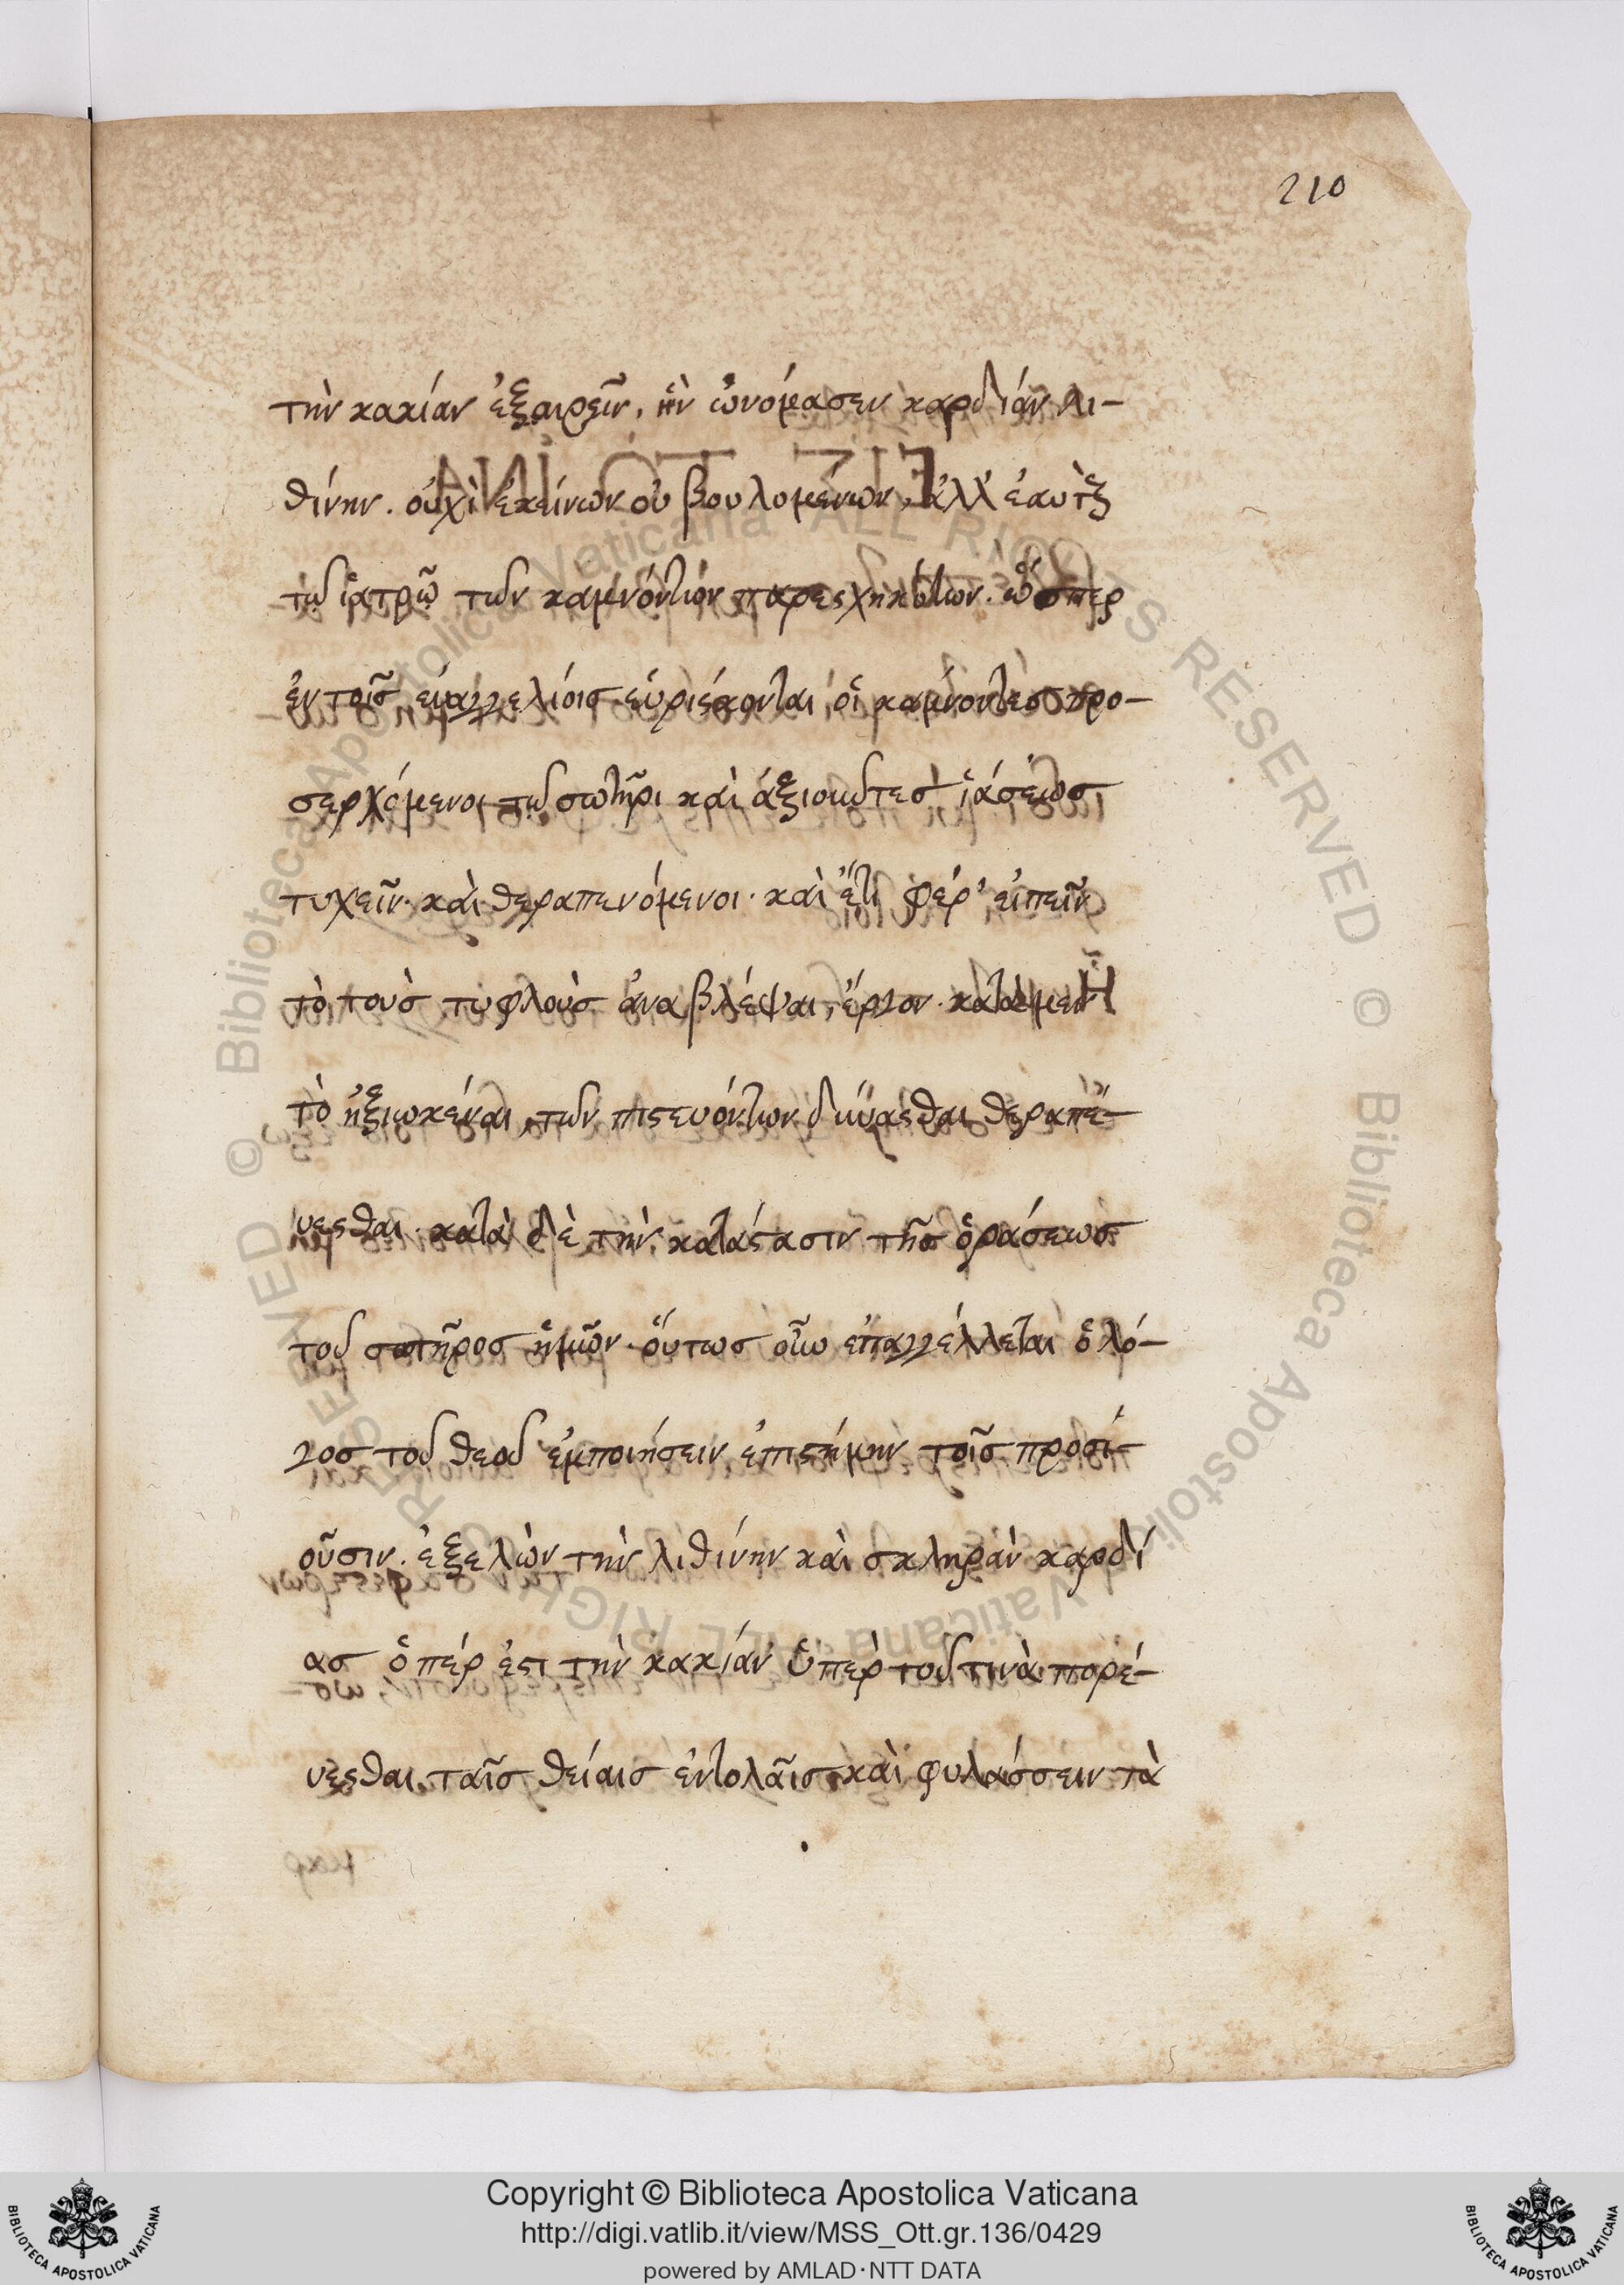 210
τὴν κακίαν ἐξαιρεῖν, ἣν ὠνόμασεν καρδίαν λι-
θίνην. οὐχὶ ἐκείνων οὐ βουλομένων, ἀλλ' ἑαυτοὺς
τῷ ἰατρῷ τῶν καμνόντων παρεσχηκότων. ὥσπερ
ἐν τοῖς εὐαγγελίοις εὑρίσκονται οἱ κάμνοντες προ-
σερχόμενοι τῷ σωτῆρι καὶ ἀξιοῦντες ἰάσεως
τυχεῖν. καὶ θεραπευόμενοι. καὶ ἔτι φέρ' εἰπεῖν
τὸ τοὺς τυφλοὺς ἀναβλέψαι, ἔργον. κατὰ μὲν
τὸ ἠξιωκέναι, τῶν πιστευόντων δύνασθαι θεραπε-
ύεσθαι. κατὰ δὲ τὴν κατάστασιν τῆς ὁράσεως
τοῦ σωτῆρος ἡμῶν. οὕτως οὖν ἐπαγγέλλεται ὁ λό-
γος τοῦ θεοῦ ἐμποιήσειν ἐπιστήμην τοῖς προσι-
οῦσιν. ἐξελὼν τὴν λιθίνην καὶ σκληρὰν καρδί
ας ὅπέρ ἐστι τὴν κακίαν ὑπὲρ τοῦ τινὰ πορε-
ύεσθαι ταῖς θείαις ἐντολαῖς καὶ φυλάσσειν τὰ
Copyright © Biblioteca Apostolica Vaticana
http://digi.vatlib.it/view/MSS_Ott.gr.136/0429
powered by AMLAD·NTT DATA
BIBLIOTECA APOSTOLICA VATICANA
BIBLIOTECA APOSTOLICA VATICANA
© Biblioteca Apostolica Vaticana ALL RIGHTS RESERVED © Biblioteca Apostolica Vaticana ALL RIGHTS RESERVED